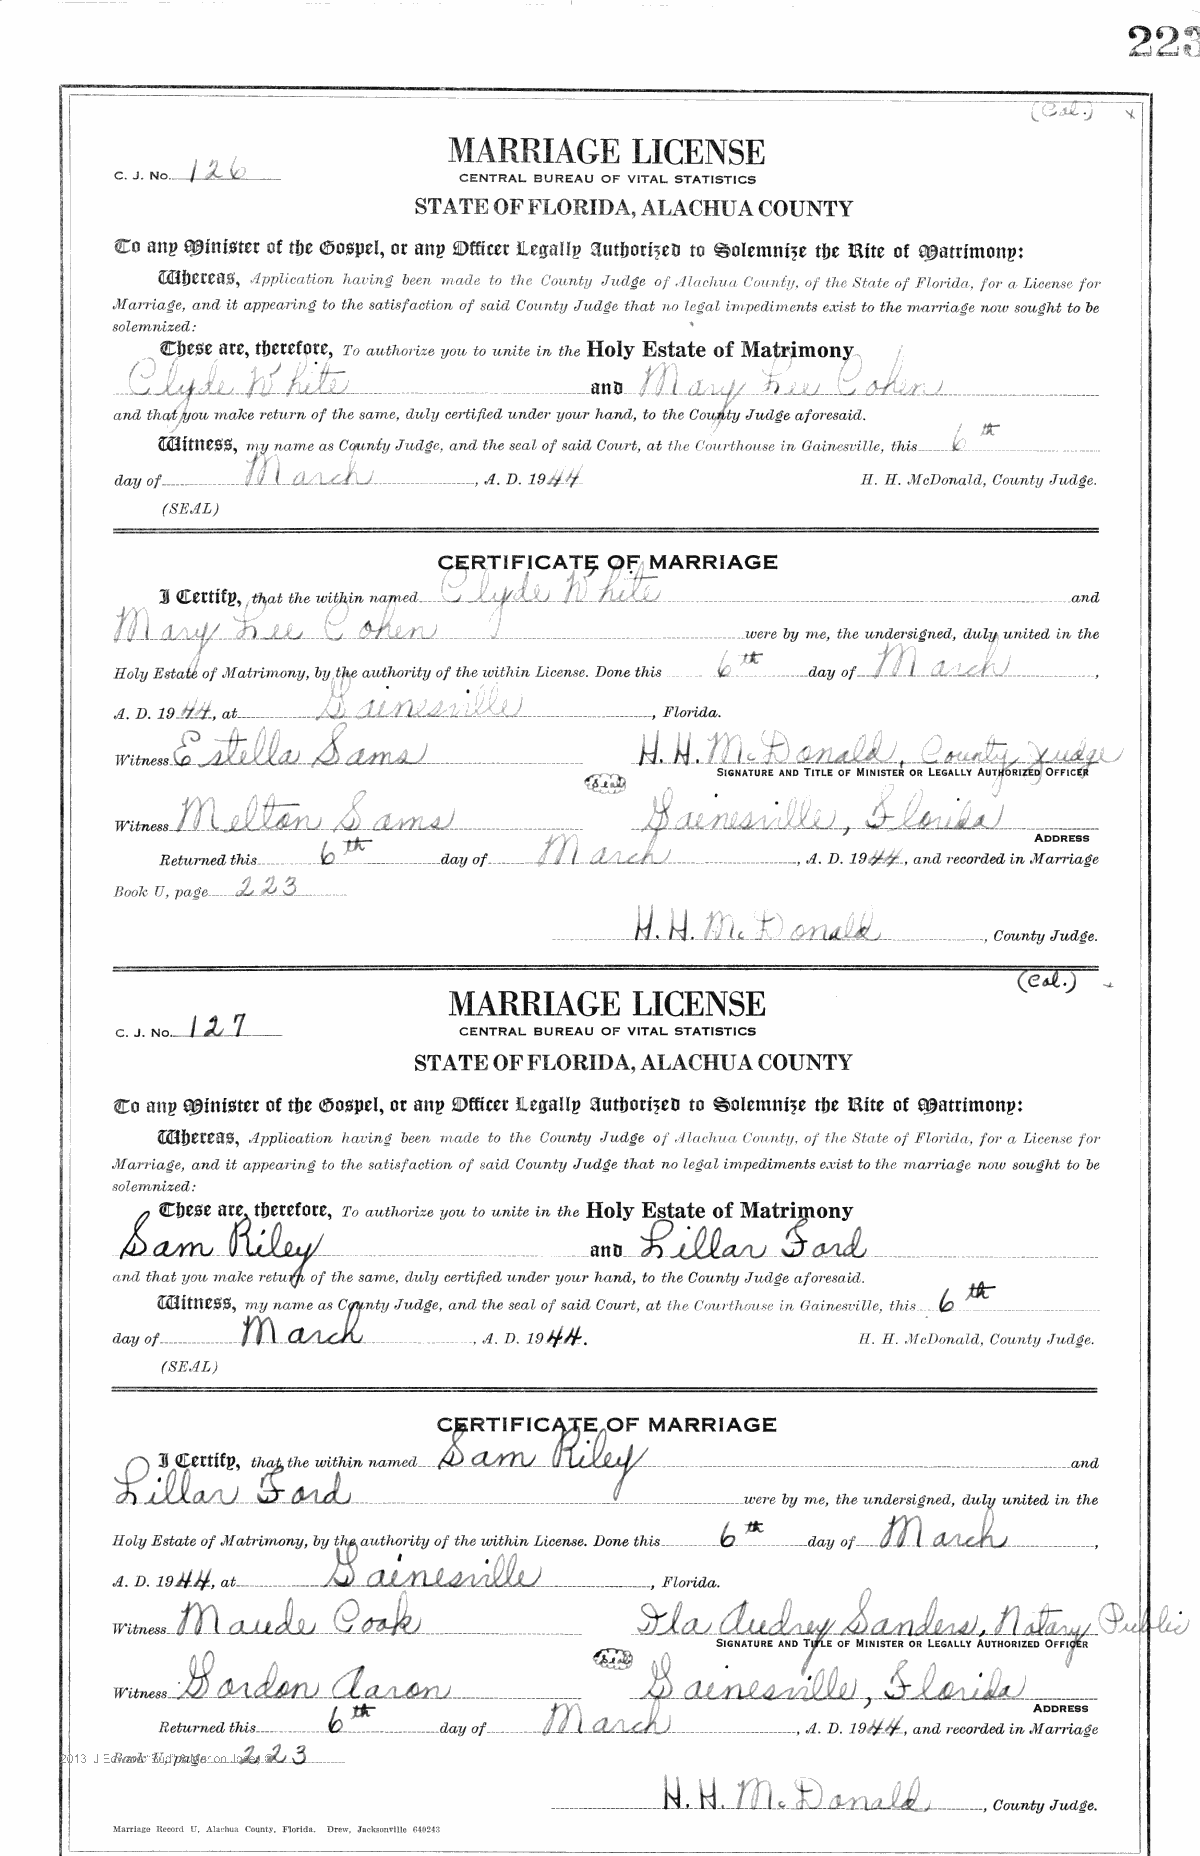 223
(Col.) x
MARRIAGE LICENSE
C. J. No. 126
CENTRAL BUREAU OF VITAL STATISTICS
STATE OF FLORIDA, ALACHUA COUNTY
To any Minister of the Gospel, or any Officer Legally Authorized to Solemnize the Rite of Matrimony:
Whereas, Application having been made to the County Judge of Alachua County, of the State of Florida, for a License for
Marriage, and it appearing to the satisfaction of said County Judge that no legal impediments exist to the marriage now sought to be
solemnized:
These are, therefore, To authorize you to unite in the Holy Estate of Matrimony
Clyde White and Mary Lee Cohen
and that you make return of the same, duly certified under your hand, to the County Judge aforesaid.
Witness, my name as County Judge, and the seal of said Court, at the Courthouse in Gainesville, this 6th
day of March, A. D. 1944 H. H. McDonald, County Judge.
(SEAL)
CERTIFICATE OF MARRIAGE
I Certify, that the within named Clyde White and
Mary Lee Cohen were by me, the undersigned, duly united in the
Holy Estate of Matrimony, by the authority of the within License. Done this 6th day of March,
A. D. 1944, at Gainesville, Florida.
Witness Estella Sams H. H. McDonald, County Judge
SIGNATURE AND TITLE OF MINISTER OR LEGALLY AUTHORIZED OFFICER
Seal
Witness Melton Sams Gainesville, Florida
ADDRESS
Returned this 6th day of March, A. D. 1944, and recorded in Marriage
Book U, page 223
H. H. McDonald, County Judge.
(Col.)
MARRIAGE LICENSE
C. J. No. 127
CENTRAL BUREAU OF VITAL STATISTICS
STATE OF FLORIDA, ALACHUA COUNTY
To any Minister of the Gospel, or any Officer Legally Authorized to Solemnize the Rite of Matrimony:
Whereas, Application having been made to the County Judge of Alachua County, of the State of Florida, for a License for
Marriage, and it appearing to the satisfaction of said County Judge that no legal impediments exist to the marriage now sought to be
solemnized:
These are, therefore, To authorize you to unite in the Holy Estate of Matrimony
Sam Riley and Lillar Ford
and that you make return of the same, duly certified under your hand, to the County Judge aforesaid.
Witness, my name as County Judge, and the seal of said Court, at the Courthouse in Gainesville, this 6th
day of March, A. D. 1944. H. H. McDonald, County Judge.
(SEAL)
CERTIFICATE OF MARRIAGE
I Certify, that the within named Sam Riley and
Lillar Ford were by me, the undersigned, duly united in the
Holy Estate of Matrimony, by the authority of the within License. Done this 6th day of March,
A. D. 1944, at Gainesville, Florida.
Witness Maude Cook Ila Audrey Sanders, Notary Public
SIGNATURE AND TITLE OF MINISTER OR LEGALLY AUTHORIZED OFFICER
Seal
Witness Gordon Aaron Gainesville, Florida
ADDRESS
Returned this 6th day of March, A. D. 1944, and recorded in Marriage
Book U, page 223
2013 J
H. H. McDonald, County Judge.
Marriage Record U, Alachua County, Florida. Drew, Jacksonville 640243